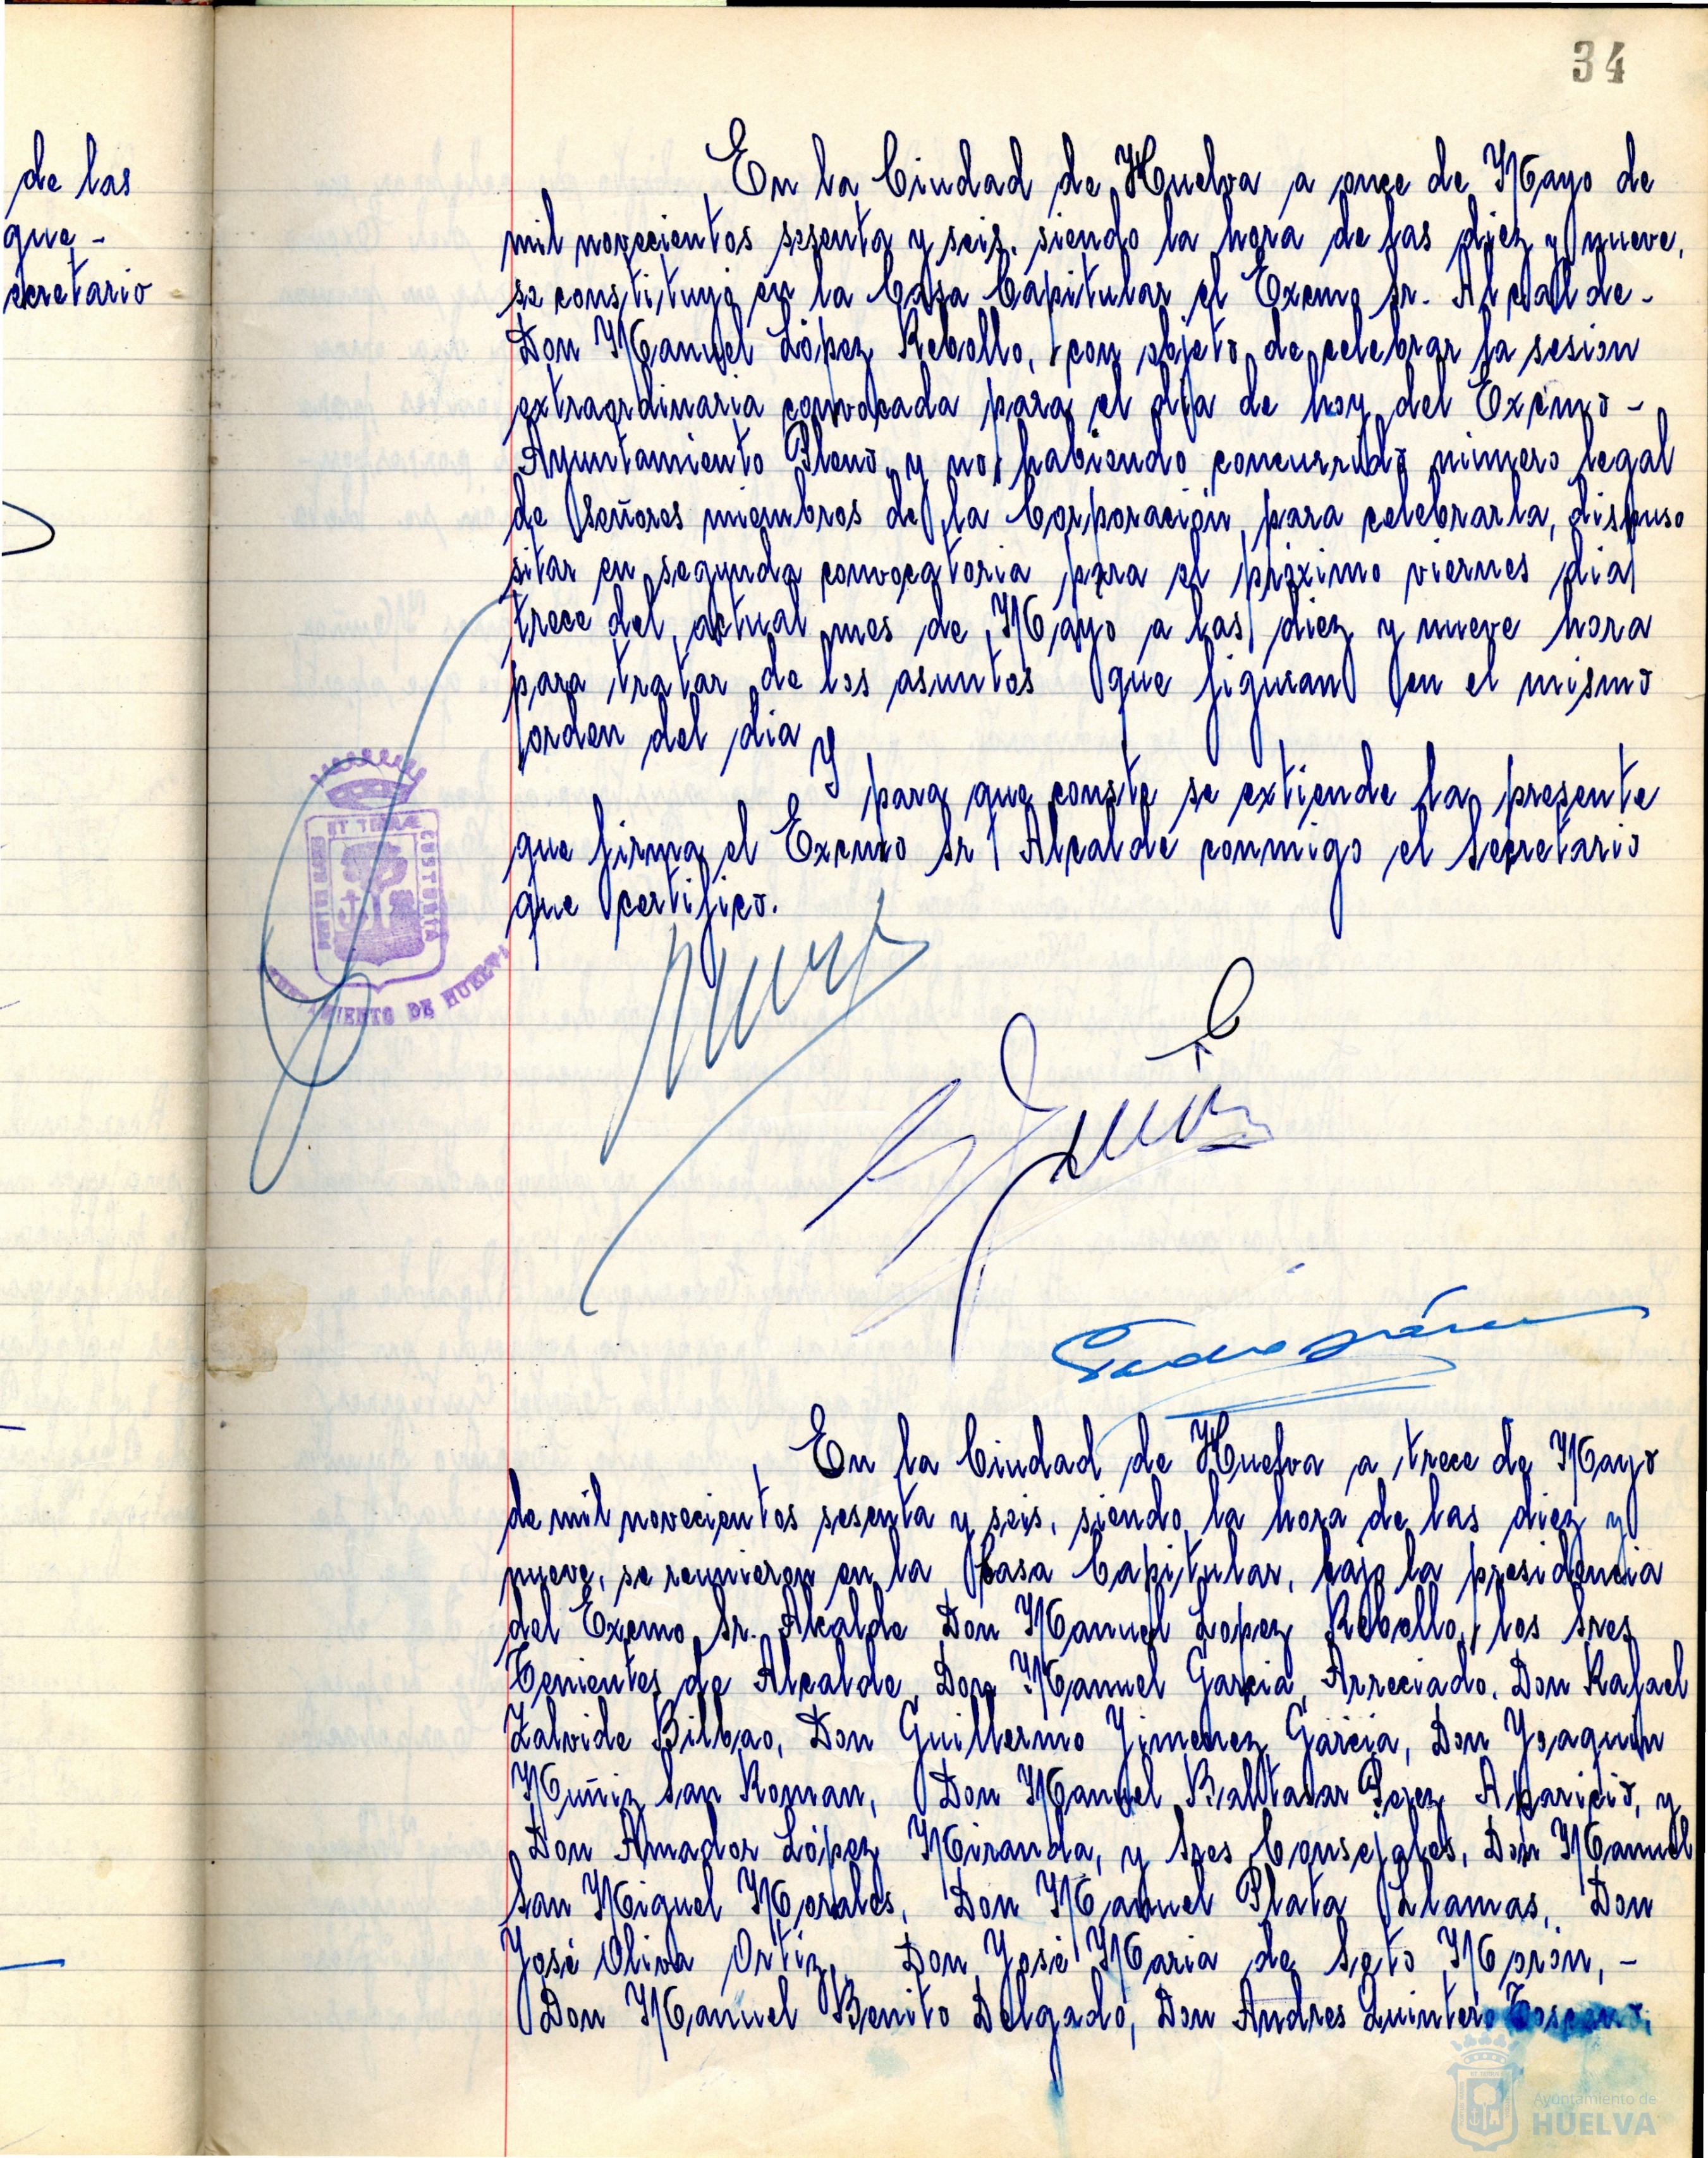 34
de las
que -
ecretario
En la Ciudad de Huelva a once de Mayo de
mil novecientos sesenta y seis. siendo la hora de las diez y nueve,
se constituyó en la Casa Capitular el Excmo Sr. Alcalde -
Don Manuel López Rebollo, con objeto de celebrar la sesión
extraordinaria convocada para el dia de hoy del Excmo -
Ayuntamiento Pleno y no habiendo concurrido número legal
de señores miembros de la Corporación para celebrarla, dispuso
sitar en segunda convocatoria para el próximo viernes dia
trece del actual mes de Mayo a las diez y nueve hora
para tratar de los asuntos que figuran en el mismo
orden del dia
Y para que conste se extiende la presente
que firma el Excmo Sr Alcalde conmigo el Secretario
que certifico.
En la Ciudad de Huelva a trece de Mayo
de mil novecientos sesenta y seis, siendo la hora de las diez y
nueve, se reunieron en la Casa Capitular, bajo la presidencia
del Excmo Sr. Alcalde Don Manuel Lopez Rebollo, los Sres
Tenientes de Alcalde Don Manuel Garcia Arreciado, Don Rafael
Zalvide Bilbao, Don Guillermo Jimenez Garcia, Don Joaquin
Muñiz San Roman, Don Manuel Baltasar Perez Aparicio, y
Don Amador López Miranda, y Sres Consejales, Don Manuel
San Miguel Morales, Don Manuel Plata Llamas, Don
José Oliva Ortiz, Don José Maria de Soto Morón, -
Don Manuel Benito Delgado, Don Andres Quintero Toscano,
ET TERRAE
CUSTODIA
PORTUS MARIS
AYUNTAMIENTO DE HUELVA
Ayuntamiento de
HUELVA